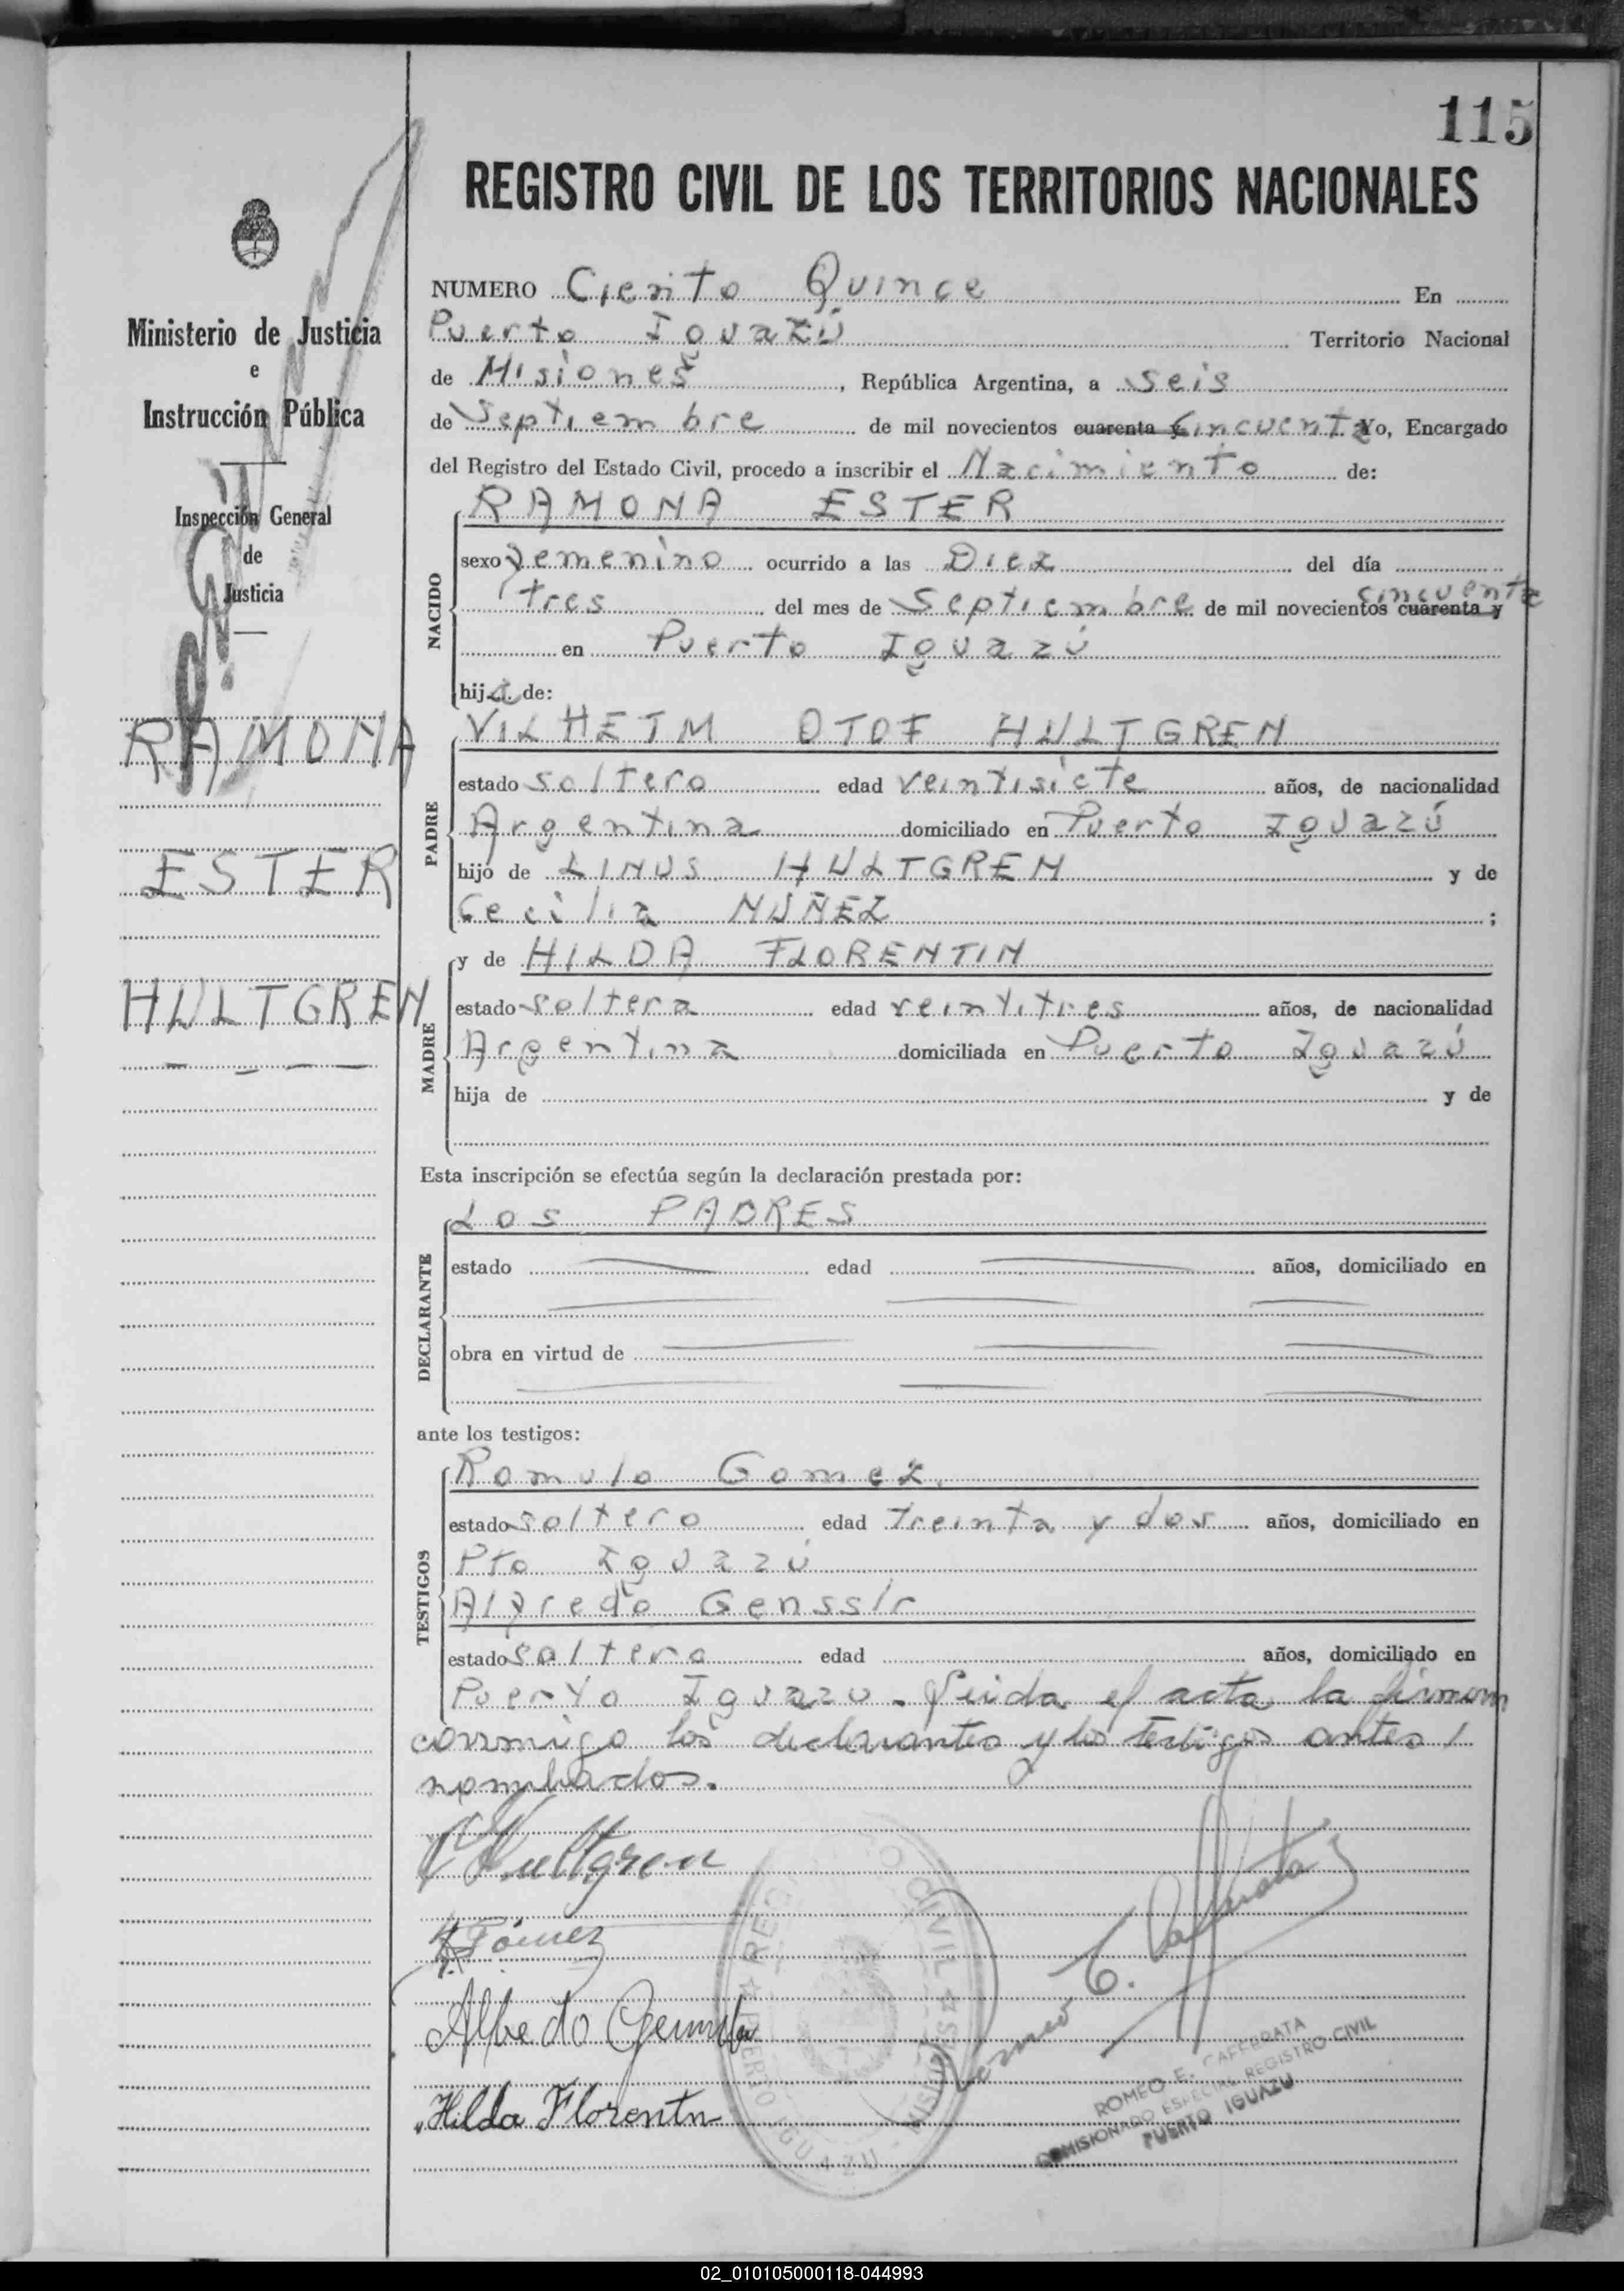 115
REGISTRO CIVIL DE LOS TERRITORIOS NACIONALES
Ministerio de Justicia
e
Instrucción Pública
Inspección General
de
Justicia
RAMONA
ESTER
HULTGREN
NUMERO Ciento Quince En
Puerto Iguazú Territorio Nacional
de Misiones, República Argentina, a seis
de Septiembre de mil novecientos cuarenta y cincuenta Yo, Encargado
del Registro del Estado Civil, procedo a inscribir el Nacimiento de:
NACIDO
RAMONA ESTER
sexo femenino ocurrido a las Diez del día
tres del mes de Septiembre de mil novecientos cuarenta y cincuenta
en Puerto Iguazú
hija de:
PADRE
VILHETM OTOF HULTGREN
estado soltero edad veintisiete años, de nacionalidad
Argentina domiciliado en Puerto Iguazú
hijo de LINUS HULTGREN y de
Cecilia NUÑEZ ;
MADRE
y de HILDA FLORENTIN
estado soltera edad veintitres años, de nacionalidad
Argentina domiciliada en Puerto Iguazú
hija de y de
Esta inscripción se efectúa según la declaración prestada por:
DECLARANTE
Los PADRES
estado edad años, domiciliado en
obra en virtud de
ante los testigos:
TESTIGOS
Romulo Gomez.
estado soltero edad treinta y dos años, domiciliado en
Pto Iguazú
Alfredo Gensslr
estado soltero edad años, domiciliado en
Puerto Iguazu. Leida el acta la firman
conmigo los declarantes y los testigos antes
nombrados.
VHultgren
R Gómez
Hilda Florentn
Romeo E. Cafferata
REGISTRO CIVIL ☆ PUERTO IGUAZU - MISIONES ☆
ROMEO E. CAFFERATA
COMISIONADO ESPECIAL REGISTRO CIVIL
PUERTO IGUAZU
02_010105000118-044993